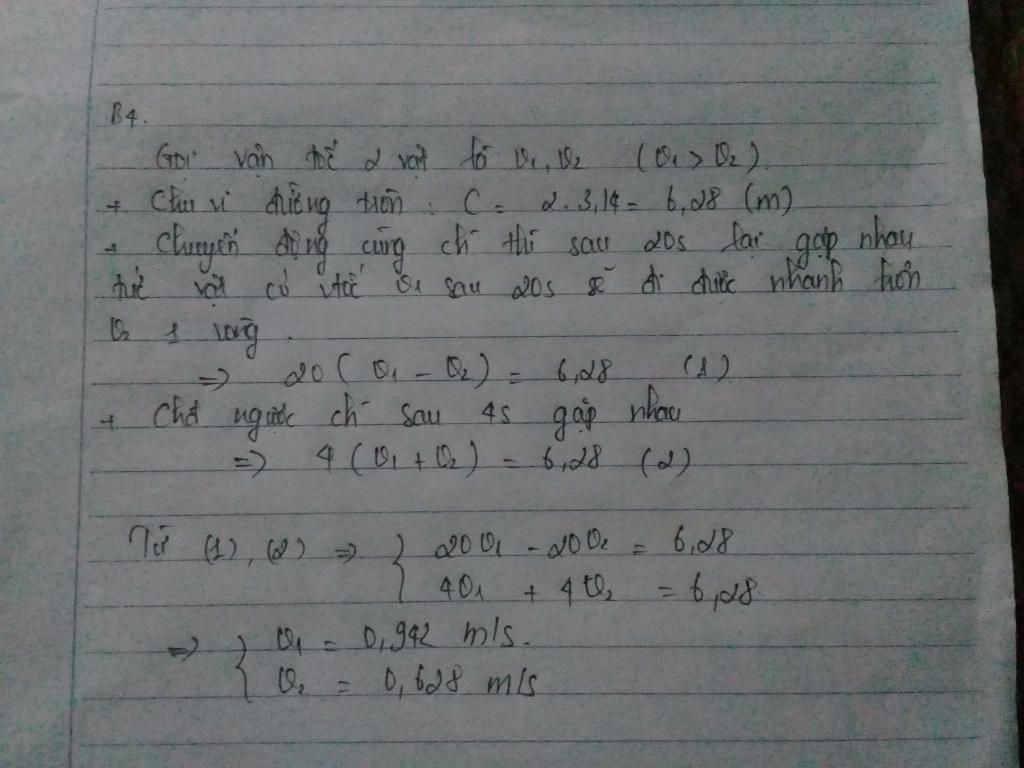 B4.
Gọi vận tốc 2 vật là v₁, v₂ (v₁ > v₂)
+ Chu vi đường tròn : C = 2.3,14 = 6,28 (m)
+ Chuyển động cùng ch thì sau 20s lại gặp nhau
tức vật có vtốc v₁ sau 20s sẽ đi được nhanh hơn
v₂ 1 vòng .
=> 20 ( v₁ - v₂ ) = 6,28 (1)
+ ngược ch sau 4s gặp nhau
=> 4 ( v₁ + v₂ ) = 6,28 (2)
Từ (1), (2) => { 20v₁ - 20v₂ = 6,28
4v₁ + 4v₂ = 6,28
=> { v₁ = 0,942 m/s.
v₂ = 0,628 m/s